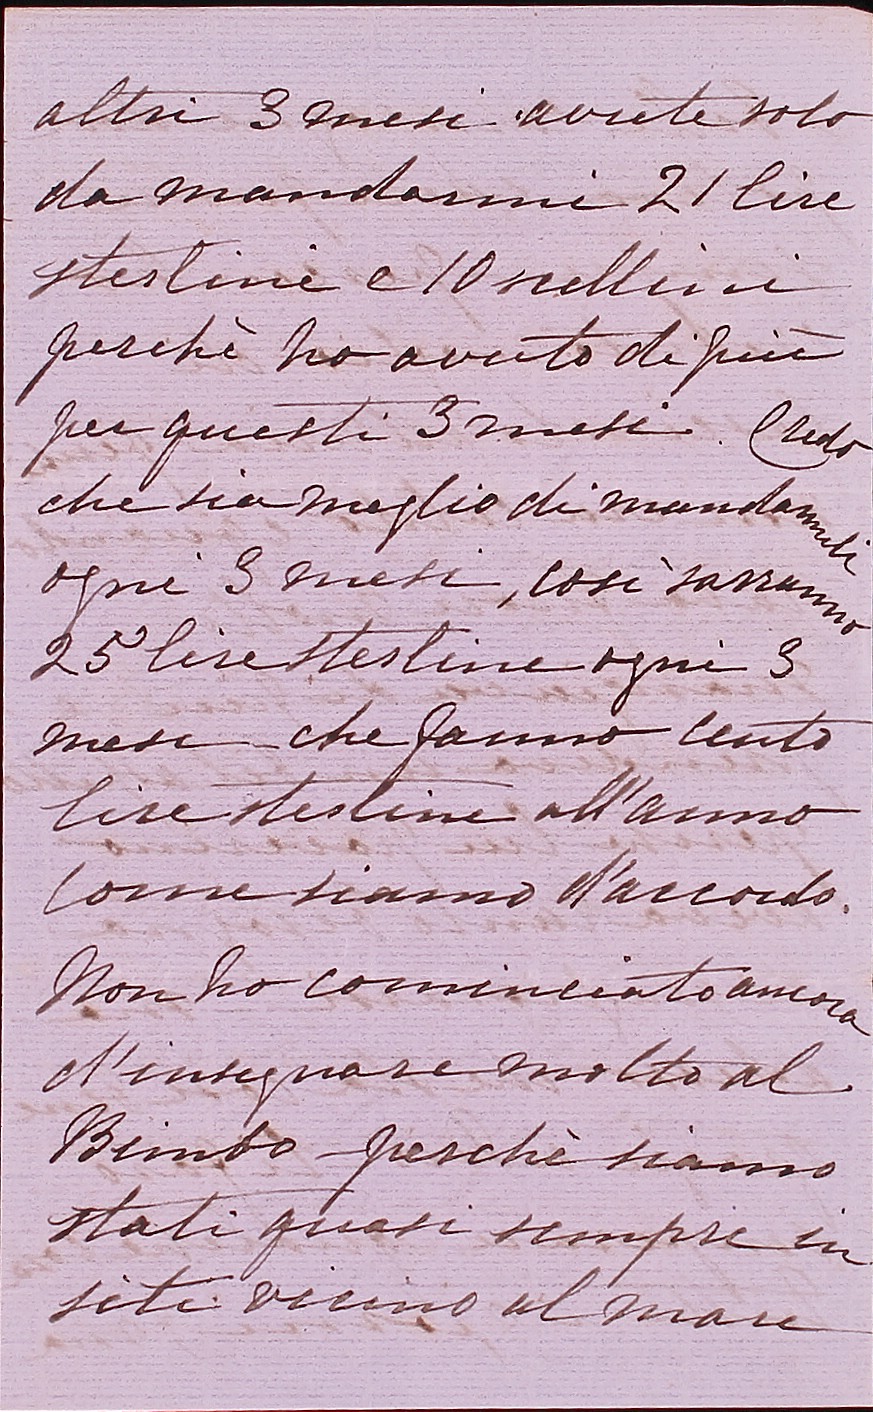 altri 3 mesi avrete solo
da mandarmi 21 lire
sterline e 10 scellini
perchè ho avuto di più
per questi 3 mesi. Credo
che sia meglio di mandarmeli
ogni 3 mesi, così saranno
25 lire sterline ogni 3
mesi che fanno cento
lire sterline all'anno
come siamo d'accordo.
Non ho cominciato ancora
d'insegnare molto al
Bimbo perchè siamo
stati quasi sempre in
siti vicino al mare